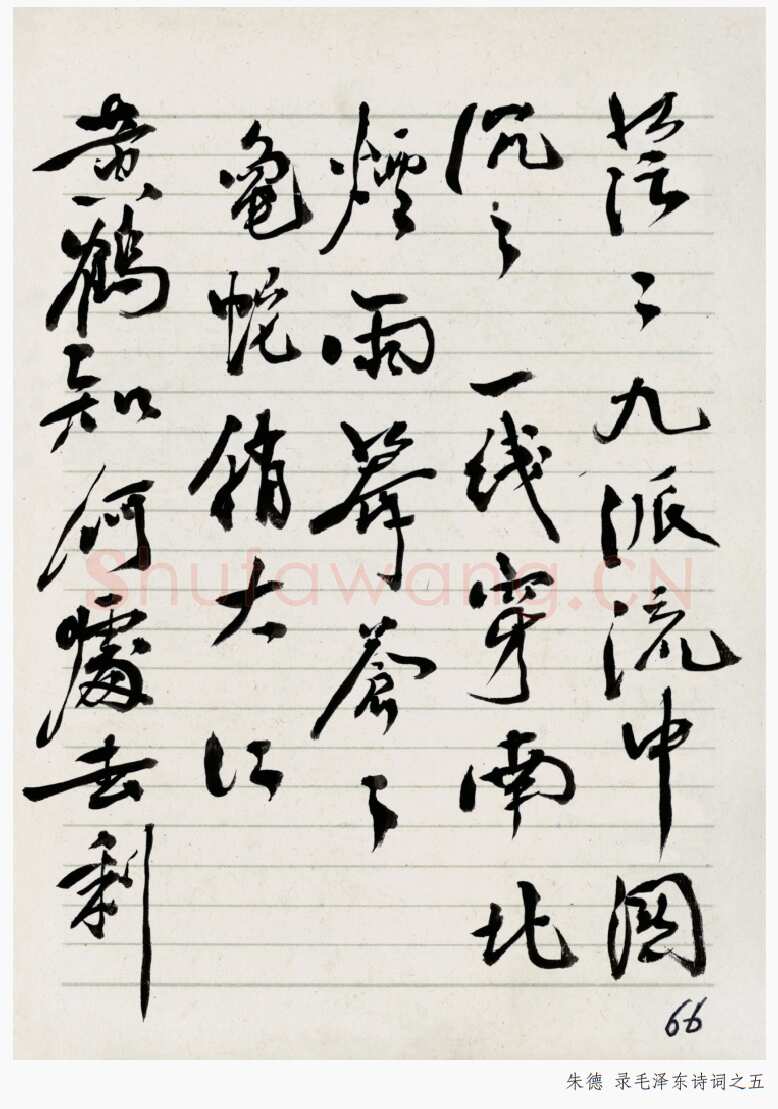 茫〻九派流中國
沉〻一线穿南北
煙雨莽蒼〻
龜蛇鎖大江
黄鶴知何處去剩
66
Shufawang.CN
朱德 录毛泽东诗词之五